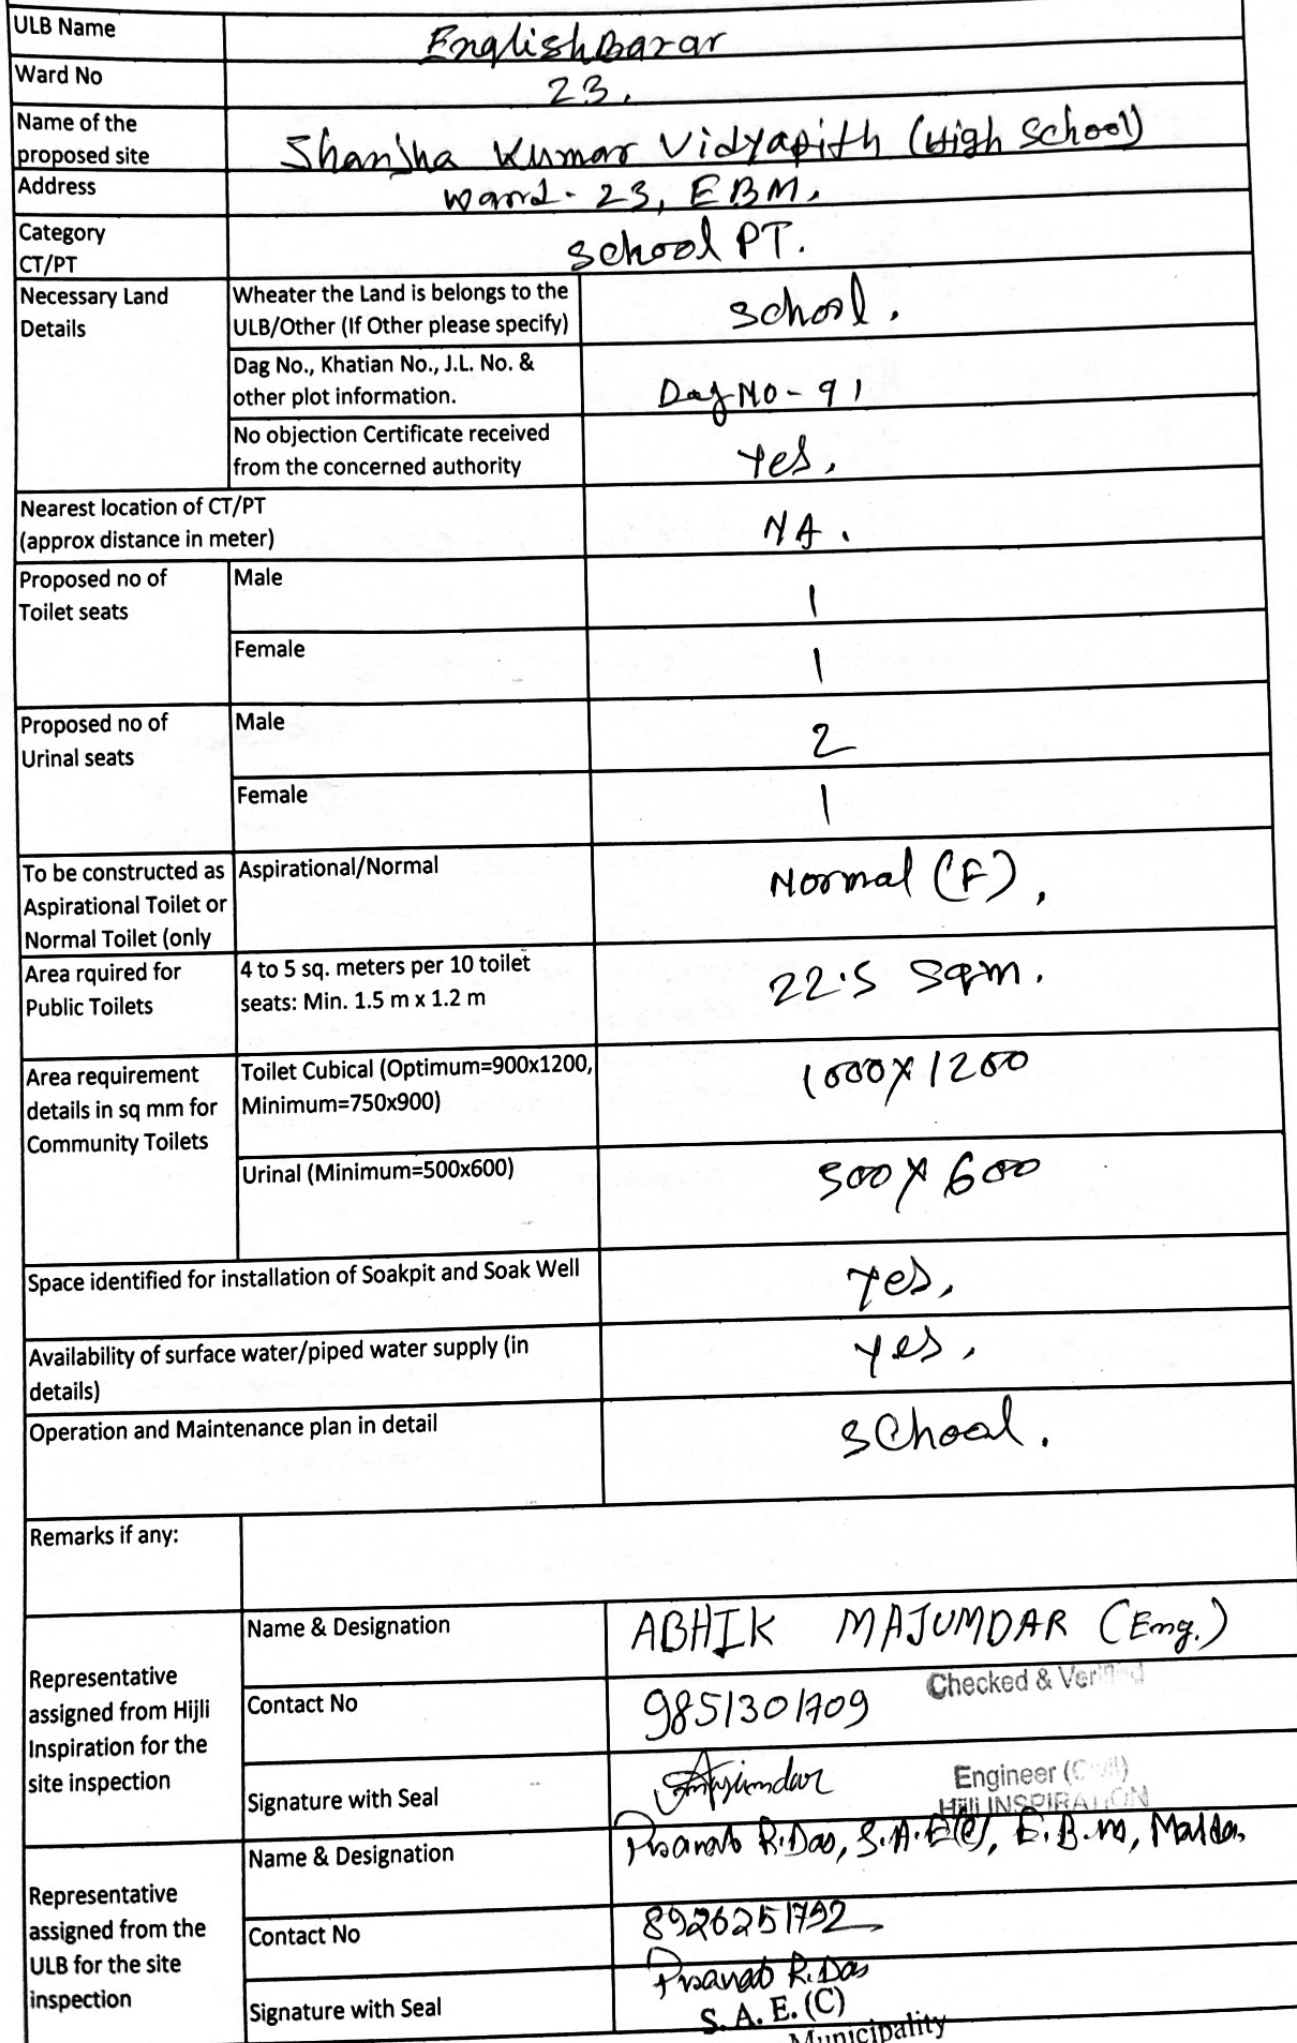 ULB Name
Englishbazar
Ward No
23.
Name of the
proposed site
Shansha Kumar Vidyapith (High School)
Address
Ward - 23, EBM.
Category
CT/PT
school PT.
Necessary Land
Details
Wheater the Land is belongs to the
ULB/Other (If Other please specify)
school.
Dag No., Khatian No., J.L. No. &
other plot information.
Dag No - 91
No objection Certificate received
from the concerned authority
Yes.
Nearest location of CT/PT
(approx distance in meter)
NA.
Proposed no of
Toilet seats
Male
1
Female
1
Proposed no of
Urinal seats
Male
2
Female
1
To be constructed as
Aspirational Toilet or
Normal Toilet (only
Aspirational/Normal
Normal (F),
Area rquired for
Public Toilets
4 to 5 sq. meters per 10 toilet
seats: Min. 1.5 m x 1.2 m
22.5 Sqm.
Area requirement
details in sq mm for
Community Toilets
Toilet Cubical (Optimum=900x1200,
Minimum=750x900)
1000 X 1200
Urinal (Minimum=500x600)
500 X 600
Space identified for installation of Soakpit and Soak Well
Yes,
Availability of surface water/piped water supply (in
details)
Yes,
Operation and Maintenance plan in detail
School.
Remarks if any:
Representative
assigned from Hijli
Inspiration for the
site inspection
Name & Designation
ABHIK MAJUMDAR (Eng.)
Contact No
9851301709
Checked & Verified
Signature with Seal
Majumdar
Engineer (Civil)
Hijli INSPIRATION
Representative
assigned from the
ULB for the site
inspection
Name & Designation
Pranab R. Das, S.A.E(C), E.B.M, Malda
Contact No
8926251792
Signature with Seal
Pranab R. Das
S. A. E. (C)
Municipality